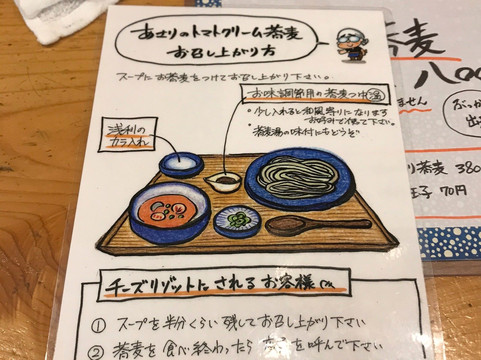 あさりのトマトクリーム蕎麦
お召し上がり方
スープにお蕎麦をつけてお召し上がり下さい。
お味調節用の蕎麦つゆ
・少し入れると和風寄りになります
お好みで使て下さい。
・蕎麦湯の味付にもどうぞ
浅利の
カラ入れ
チーズリゾットにされるお客様
① スープを半分くらい残してお召し上がり下さい
② 蕎麦を食べ終わったら を呼んで下さい
蕎麦
八00
ません
蕎麦 380
玉子 70円